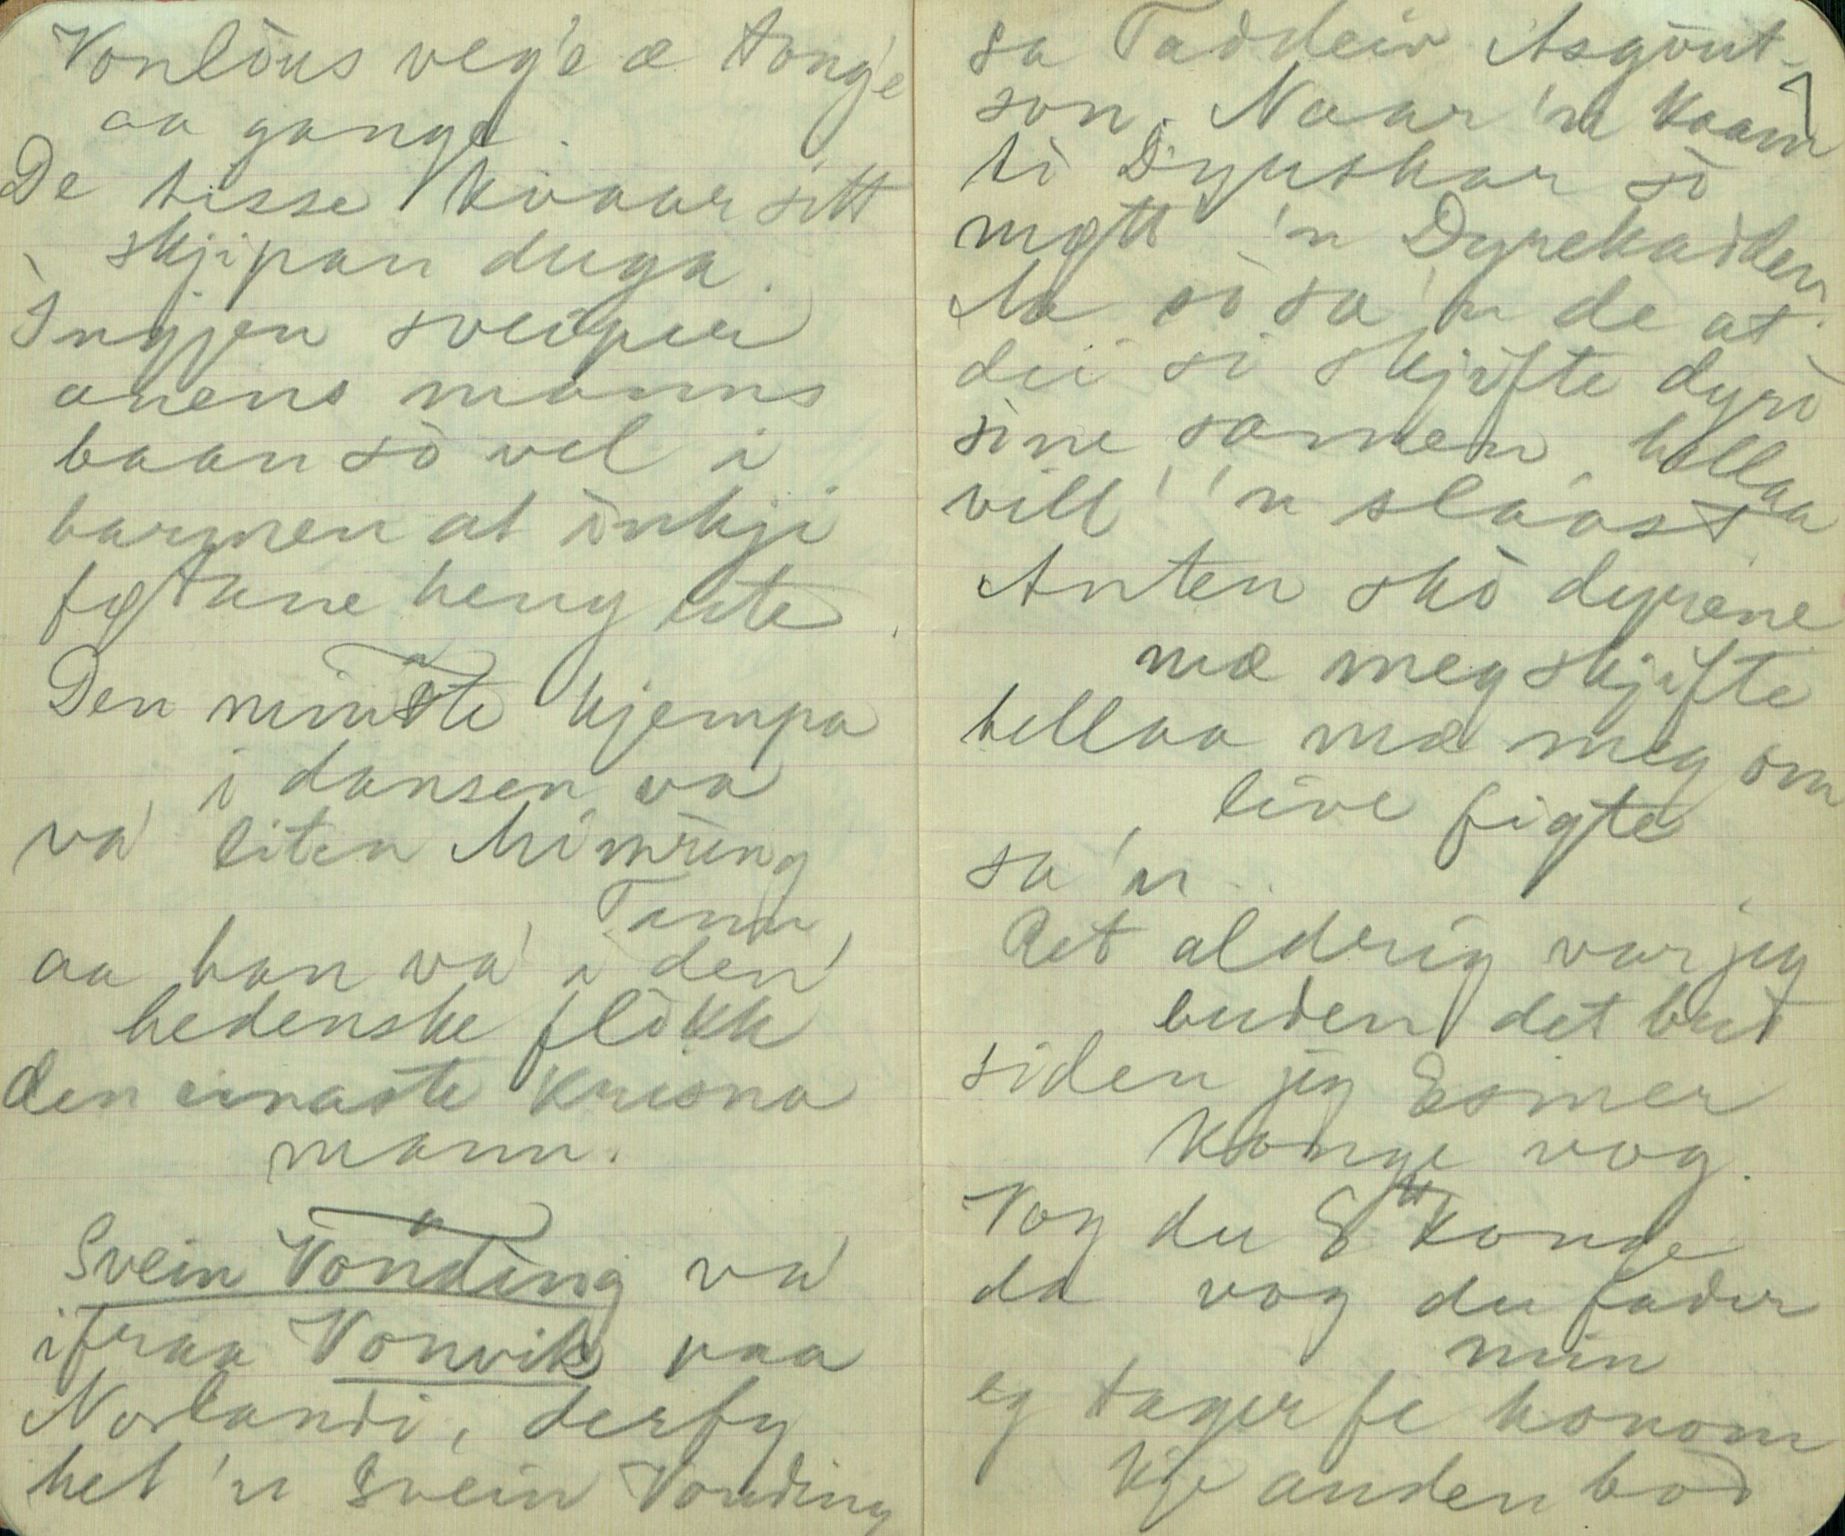 Vonlòus veg'e æ tong'e
aa gange.
De tisse kvaar sitt
skjipan duga.
Ingjen sveiper
anens manns
baan sò vel i
barmen at ònkji
føtane heng ute.
Den minste kjempa
i dansen va
va' liten Mimring
Tann
aa han va' i den
hedenske flòkk
den einaste krisna
mann.
Svein Vonding va'
ifraa Vonvik paa
Norlandi, derfy
het 'n Svein Vonding
sa Taddeiv Asgout-
son. Naar 'n kaam
ti Dyrskar sò
møtt 'n Dyrekadden
Aa sò sa 'n de at
dei si skjifte dyrò
sine samen, hellaa
vill' 'n slaast
Anten skò dyrene
mæ meg skjifte
hellaa mæ meg om
live figte
sa 'n.
Ret aldrig var jeg
buden det bud
siden jeg Esmer
konge vog.
Vog du E konge
da vog du fader
min
eg tager fe honom
kje anden bod